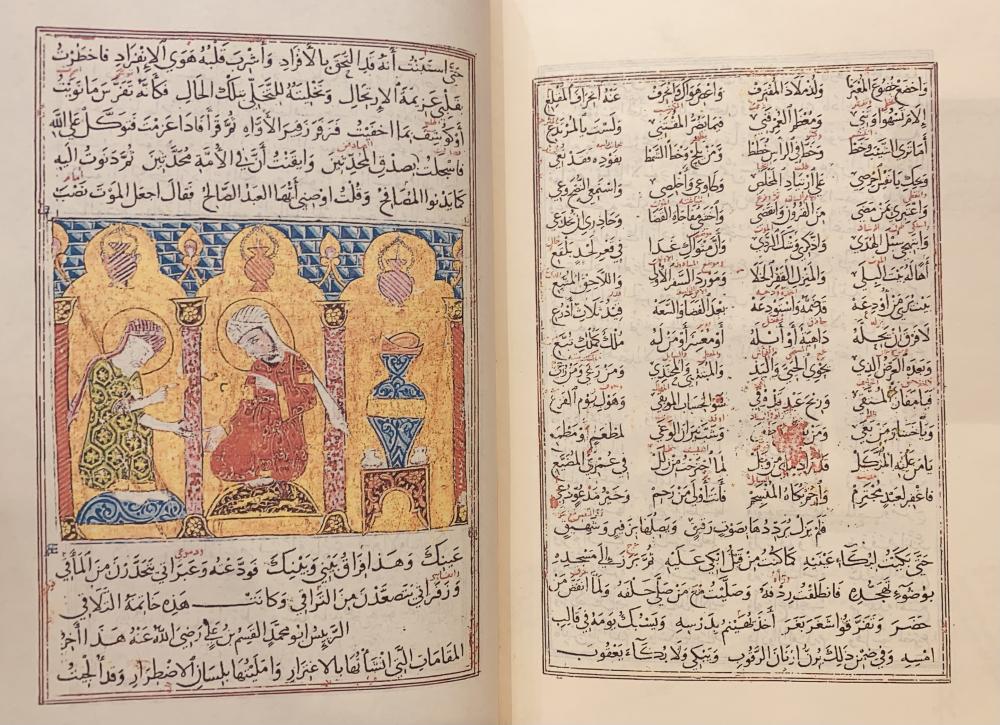 واخضع خضوع المعترف ولذ ملاذ المقترف واعص هواك وانحرف عنه انحراف المقلع
إلام تسهو وتني ومعظم العمر فني فيما يضر المقتني ولست بالمرتدع
أما ترى الشيب وخط وخط في الرأس خطط ومن يلح وخط الشمط بفوده فقد نعي
ويحك يا نفس احرصي على ارتياد المخلص وطاوعي وأخلصي واستمعي النصح وعي
واعتبري بمن مضى من القرون وانقضى واخشي مفاجاة القضا وحاذري أن تخدعي
وانتهجي سبل الهدى وادكري وشك الردى وأن مثواك غدا في قعر لحد بلقع
آها له بيت البلى والمنزل القفر الخلا ومورد السفر الأولى واللاحق المتبع
بيت يرى من أودعه قد ضمه واستودعه بعد الفضا والسعه قيد ثلاث أذرع
لا فرق أن يحله داهية أو أبله أو معسر أو من له ملك كملك تبع
وبعده العرض الذي يحوي الحيي والبذي والمبتدي والمحتذي ومن رعى ومن رعي
فيا مفاز المتقي وربح عبد قد وقي سوء الحساب الموبق وهول يوم الفزع
ويا خسار من بغى ومن وطغى وشب نيران الوغى لمطعم أو مطمع
يا من عليه المتكل قد زاد ما بي من وجل لما اجترحت من زلل في عمري المضيع
فاغفر لعبد مجترم وارحم بكاه المنسجم فأنت أولى من رحم وخير مدعو دعي
فلم يزل يرددها بصوت رقيق ويصلها بزفير وشهيق
حتى بكيت لبكاء عينيه كما كنت من قبل أبكي عليه ثم برز إلى مسجده
بوضوء تهجده فانطلقت ردفه وصليت مع من صلى خلفه ولما انفض من
حضر وتفرقوا شغر بغر أخذ يهينم بدرسه ويسبك يومه في قالب
أمسه وفي ضمن ذلك يرن إرنان الرقوب ويبكي ولا بكاء يعقوب
حتى استبنت أنه قد التحق بالأفراد وأشرب قلبه هوى الانفراد فأخطرت
بقلبي عزيمة الارتحال وتخليته للتخلي بتلك الحال فكأنه تفرس ما نويت
أو كوشف بما أخفيت فزفر زفير الأواه ثم قرأ فإذا عزمت فتوكل على الله
فأسجلت بصدق المحدثين وأيقنت أن في الأمة محدثين ثم دنوت إليه
كما يدنو المصافح وقلت أوصني أيها العبد الصالح فقال اجعل الموت نصب
عينك وهذا فراق بيني وبينك فودعته وعبراتي يتحدرن من المآقي
وزفراتي يتصعدن من التراقي وكانت هذه خاتمة التلاقي
الرييس أبو محمد القسم بن علي رضي الله عنه هذا آخر
المقامات التي أنشأتها بالاغترار وأمليتها بلسان الاضطرار وقد ألجيت